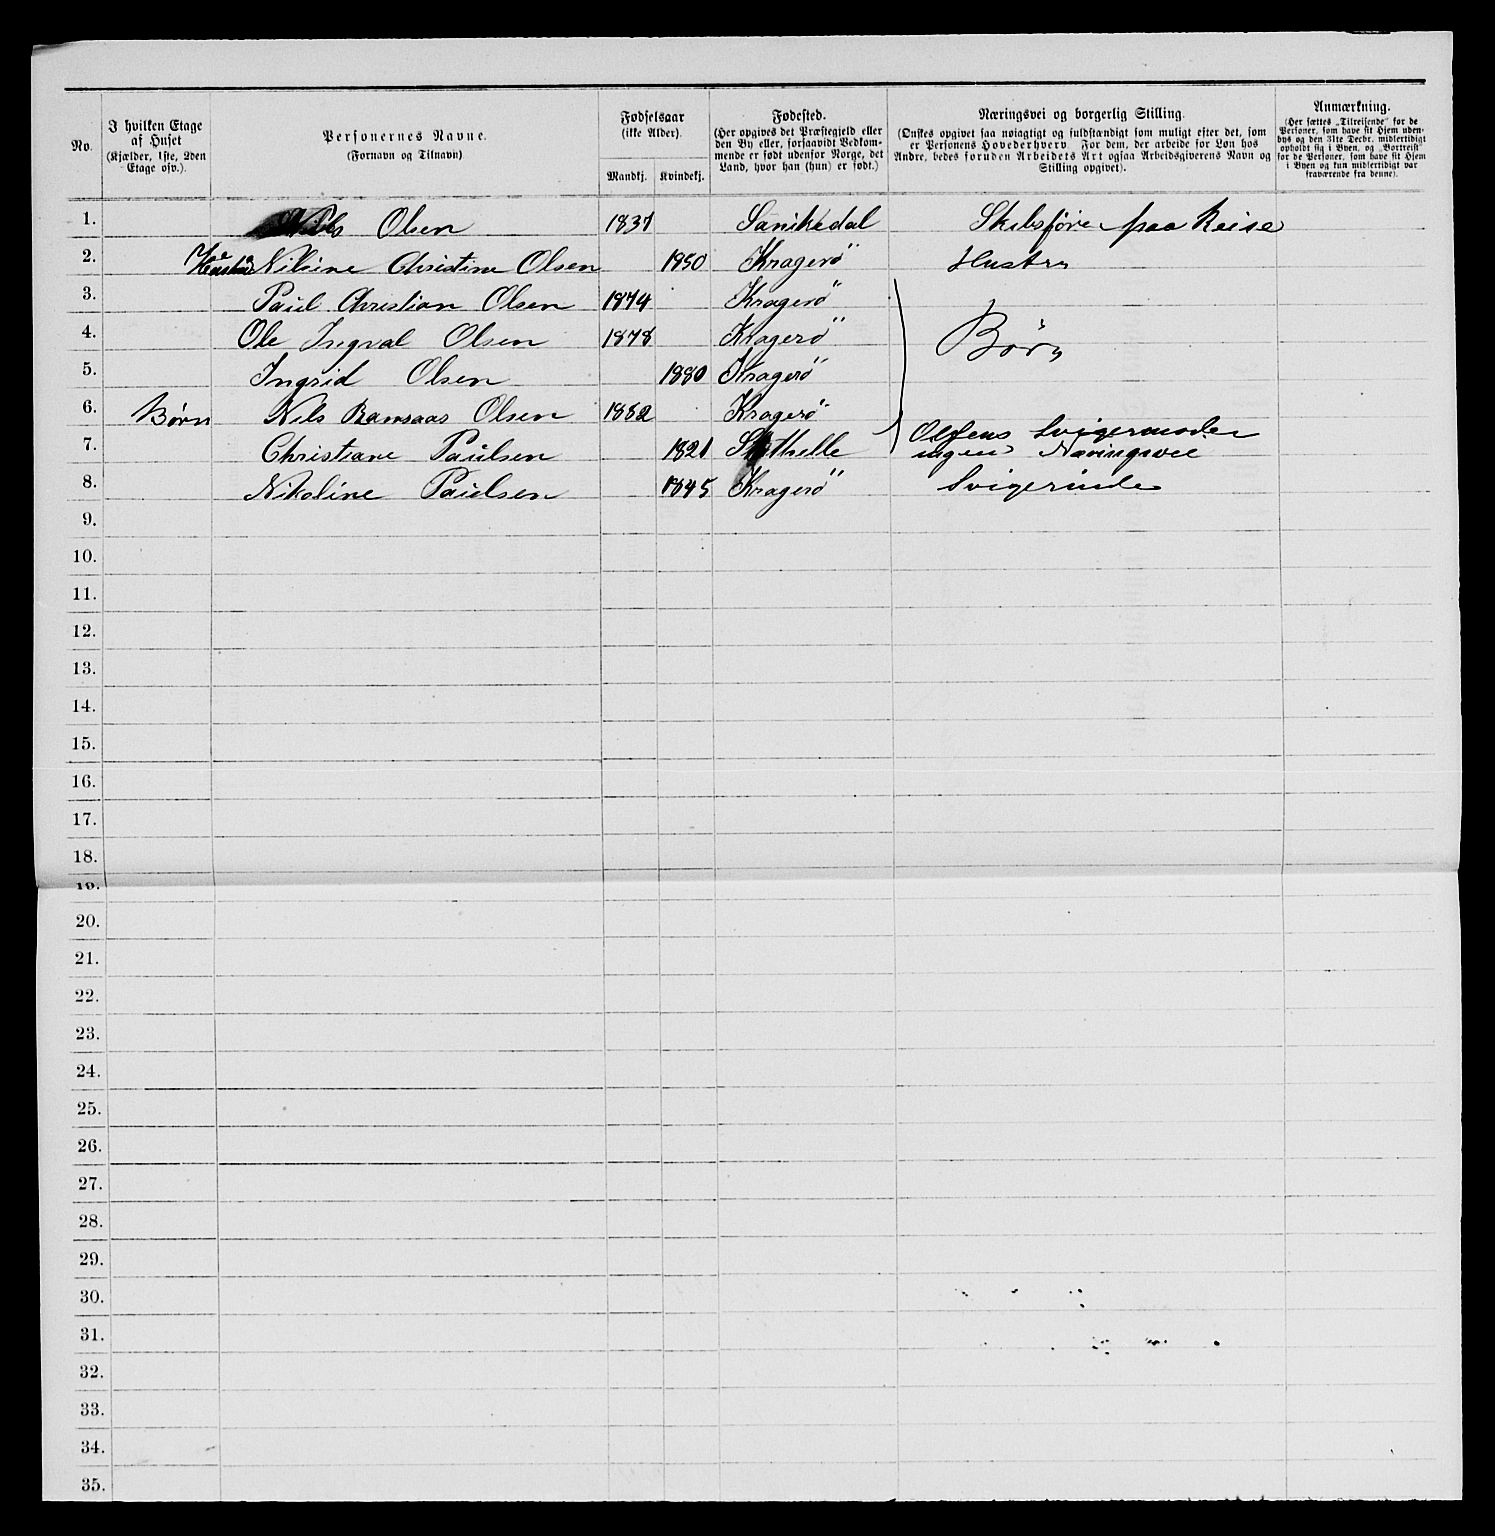 No.
I hvilken Etage
af Huset
(Kjælder, 1ste, 2den
Etage osv.).
Personernes Navne.
(Fornavn og Tilnavn)
Fødselsaar
(ikke Alder).
Mandkj. Kvindekj.
Fødested.
(Her opgives det Præstegjeld eller
den By eller, forsaavidt Vedkom-
mende er født udenfor Norge, det
Land, hvor han (hun) er født.)
Næringsvei og borgerlig Stilling.
(Ønskes opgivet saa nøiagtigt og fuldstændigt som muligt efter det, som
er Personens Hovederhverv For dem, der arbeide for Løn hos
Andre, bedes foruden Arbeidets Art ogsaa Arbeidsgiverens Navn og
Stilling opgivet).
Anmærkning.
(Her sættes „Tilreisende" for de
Personer, som have sit Hjem uden-
bys og den 31te Decbr. midlertidigt
opholdt sig i Byen, og „Bortreist"
for de Personer, som have sit Hjem
i Byen og kun midlertidigt var
fraværende fra denne).
1. Nils Olsen 1831 Sanikedal Skibsfører paa Reise
2. Hustru Nilsine Christine Olsen 1850 Kragerö Hustru
3. Paul Christian Olsen 1874 Kragerö
4. Ole Ingval Olsen 1878 Kragerö Børn
5. Ingrid Olsen 1880 Kragerö
6. Børn Nils Bamsaas Olsen 1882 Kragerö
7. Christiane Paulsen 1821 Stathelle Olsens Svigermoder
ingen Næringsvei
8. Nikoline Paulsen 1845 Kragerö Svigerinde
9.
10.
11.
12.
13.
14.
15.
16.
17.
18.
19.
20.
21.
22.
23.
24.
25.
26.
27.
28.
29.
30.
31.
32.
33.
34.
35.